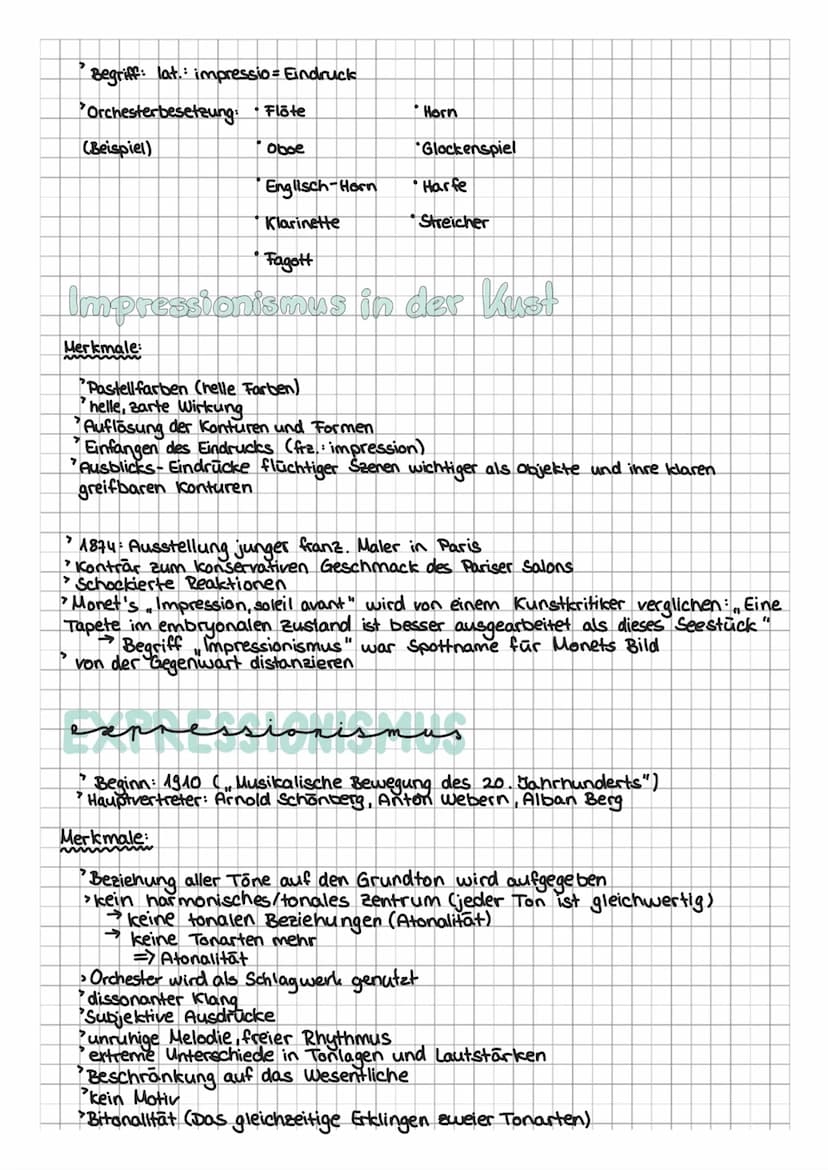 > Begriff: lat.: impressio = Eindruck
> Orchesterbesetzung: • Flöte • Horn
(Beispiel) • Oboe • Glockenspiel
• Englisch-Horn • Harfe
• Klarinette • Streicher
• Fagott
Impressionismus in der Kust
Merkmale:
> Pastellfarben (helle Farben)
> helle, zarte Wirkung
> Auflösung der Konturen und Formen
> Einfangen des Eindrucks (frz.: impression)
> Ausblicks- Eindrücke flüchtiger Szenen wichtiger als Objekte und ihre klaren
greifbaren Konturen
> 1874: Ausstellung junger franz. Maler in Paris
> Konträr zum konservativen Geschmack des Pariser Salons
> Schockierte Reaktionen
> Monet's „Impression, soleil avant" wird von einem Kunstkritiker verglichen: „Eine
Tapete im embryonalen Zustand ist besser ausgearbeitet als dieses Seestück"
→ Begriff „Impressionismus" war Spottname für Monets Bild
> von der Gegenwart distanzieren
EXPRESSIONISMUS
expressionismus
> Beginn: 1910 („Musikalische Bewegung des 20. Jahrhunderts")
> Hauptvertreter: Arnold Schönberg, Anton Webern, Alban Berg
Merkmale:
> Beziehung aller Töne auf den Grundton wird aufgegeben
> kein harmonisches/tonales Zentrum (jeder Ton ist gleichwertig)
→ keine tonalen Beziehungen (Atonalität)
→ keine Tonarten mehr
=> Atonalität
> Orchester wird als Schlagwerk genutzt
> dissonanter Klang
> Subjektive Ausdrücke
> unruhige Melodie, freier Rhythmus
> extreme Unterschiede in Tonlagen und Lautstärken
> Beschränkung auf das Wesentliche
> kein Motiv
> Bitonalität (Das gleichzeitige Erklingen zweier Tonarten)